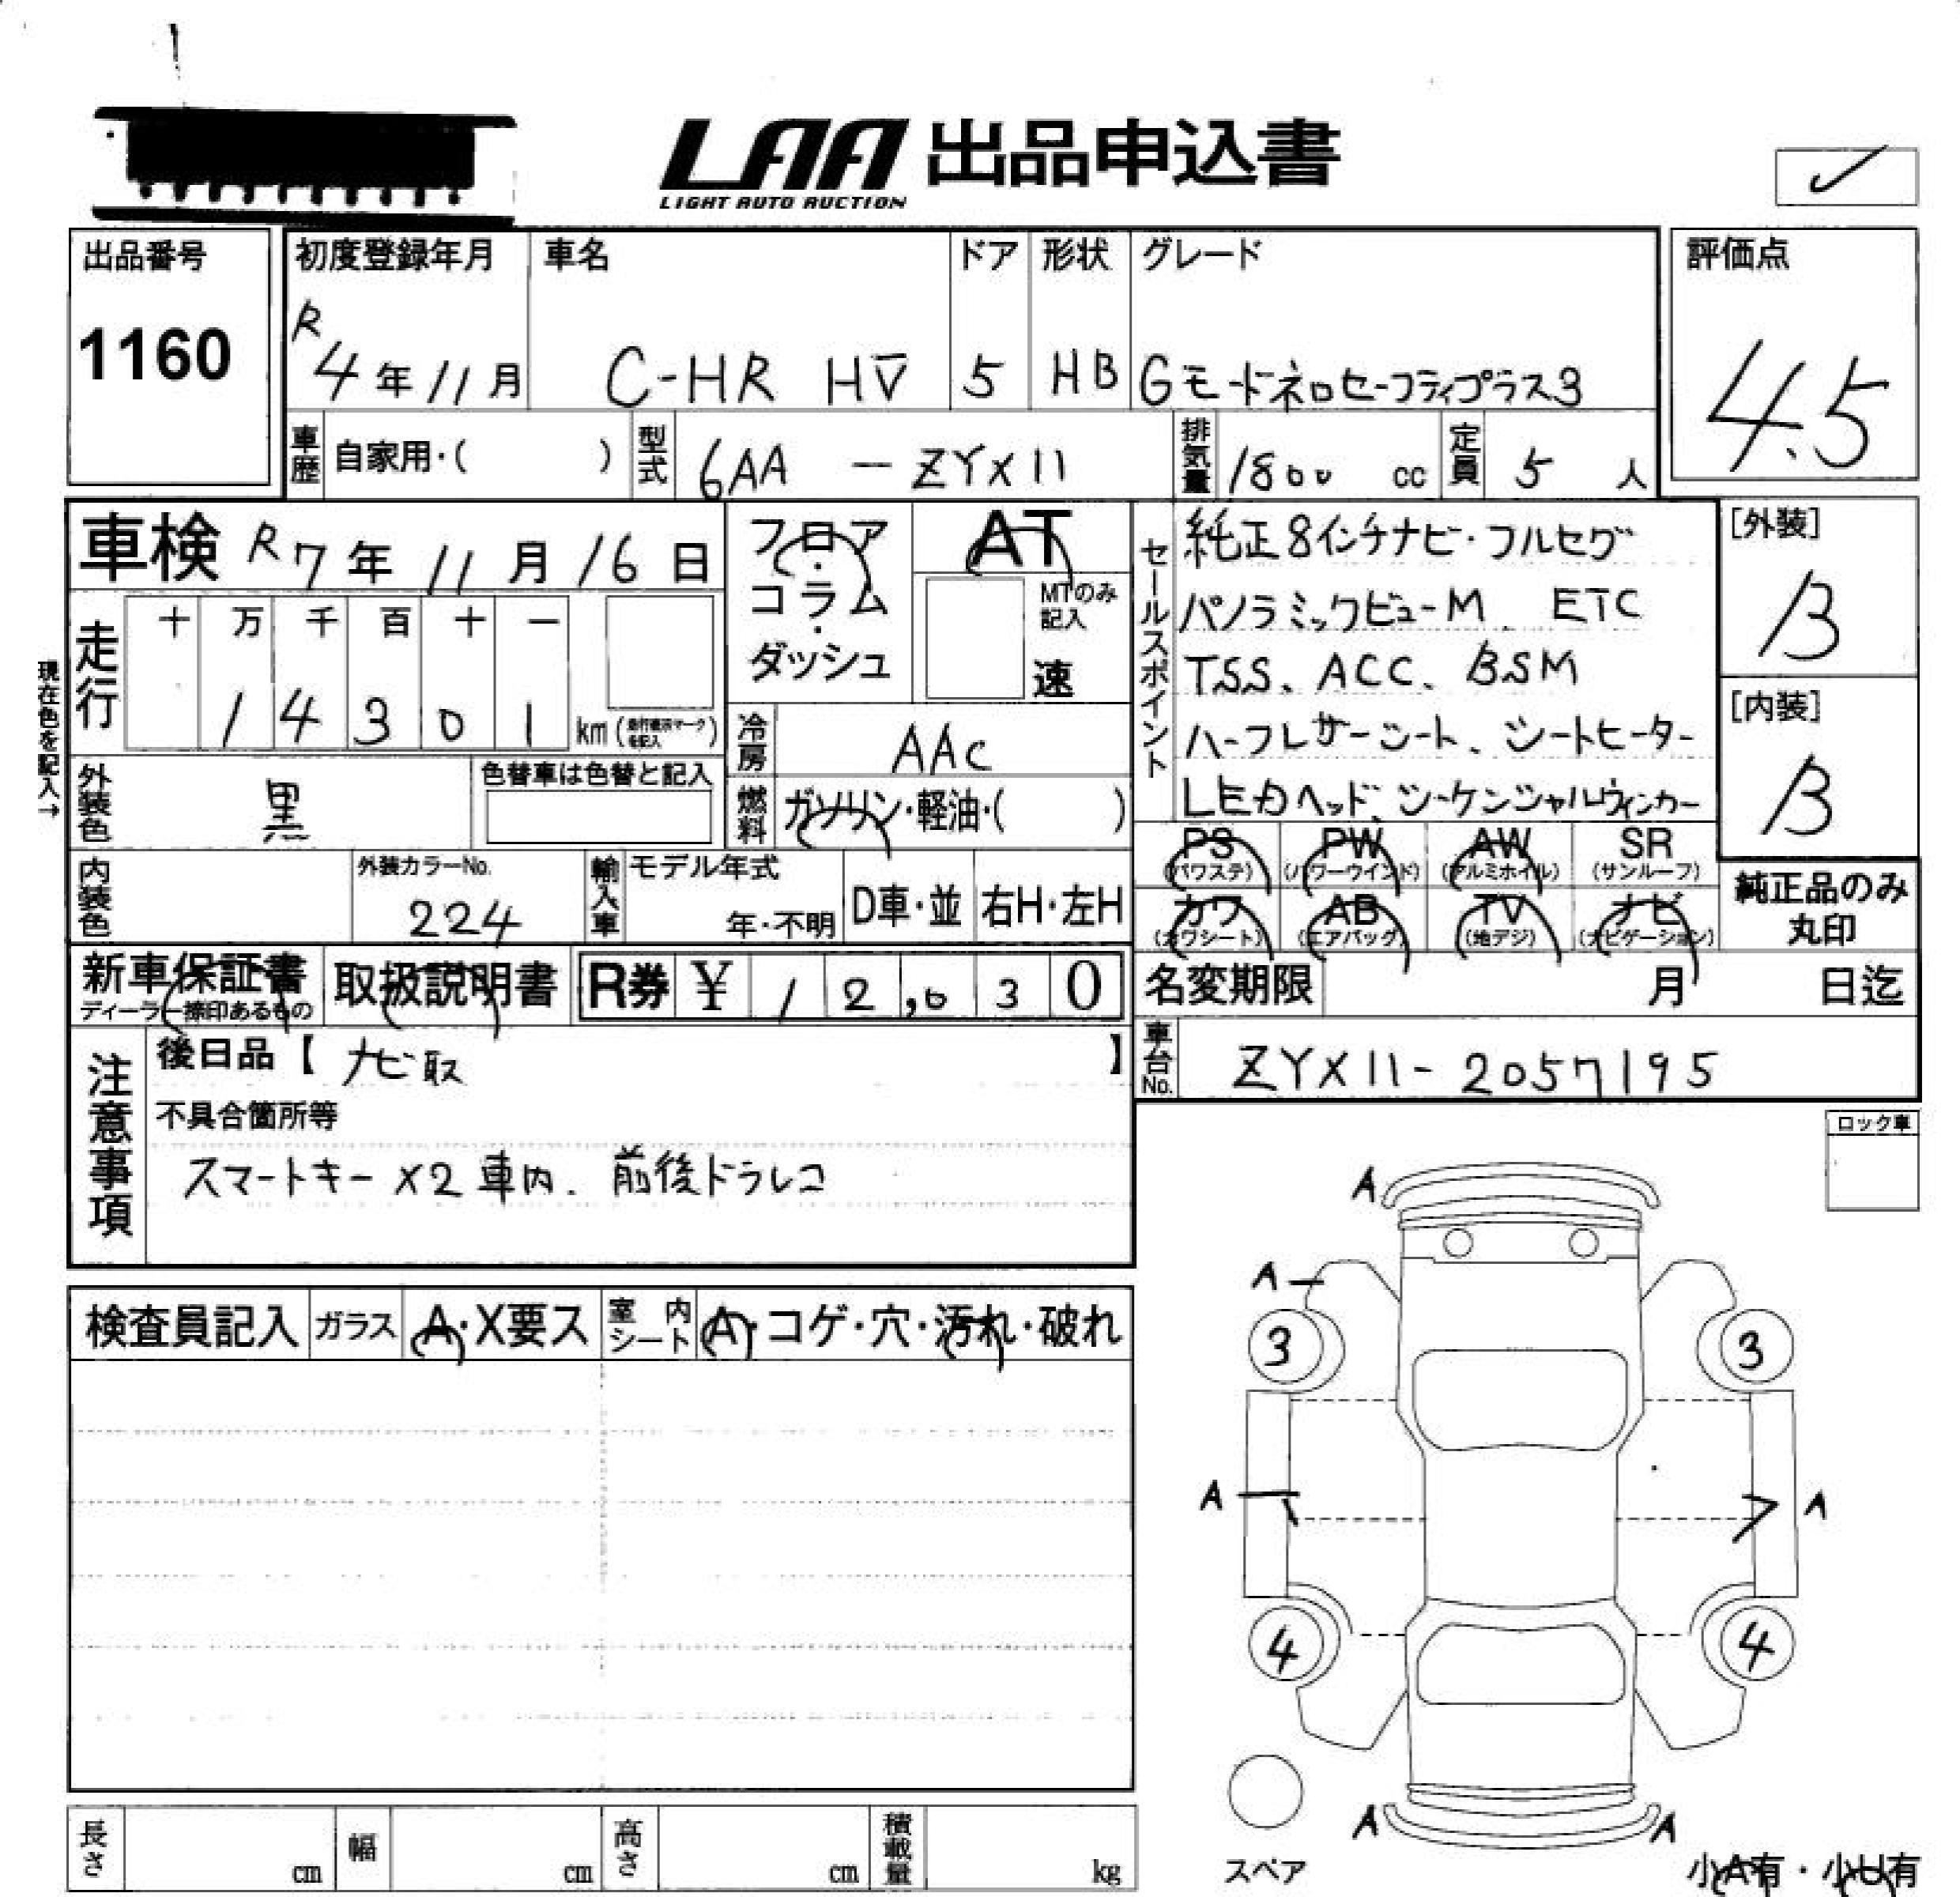 LAA 出品申込書
LIGHT AUTO AUCTION
出品番号
1160
初度登録年月
R4年11月
車名
C-HR HV
ドア
5
形状
HB
グレード
Gモードネロセーフティプラス3
評価点
4.5
車歴 自家用・( )
型式 6AA - ZYX11
排気量 1800 cc
定員 5 人
車検 R7年11月16日
走行
十 万 千 百 十 一
1 4 3 0 1 km
現在色を記入→
外装色 黒
色替車は色替と記入
内装色
外装カラーNo.
224
フロア・コラム・ダッシュ
AT
MTのみ記入
速
冷房 AAC
燃料 ガソリン・軽油・( )
輸入車
モデル年式
年・不明
D車・並
右H・左H
セールスポイント
純正8インチナビ・フルセグ
パノラミックビューM、ETC
TSS、ACC、BSM
ハーフレザーシート、シートヒーター
LEDヘッド、シーケンシャルウィンカー
[外装]
B
[内装]
B
PS (パワステ)
PW (パワーウインド)
AW (アルミホイル)
SR (サンルーフ)
カワ (カワシート)
AB (エアバッグ)
TV (地デジ)
ナビ (ナビゲーション)
純正品のみ
丸印
新車保証書
ディーラー捺印あるもの
取扱説明書
R券 ¥ 12,030
名変期限 月 日迄
車台No. ZYX11-2057195
注意事項
後日品【 ナビ取 】
不具合箇所等
スマートキー×2車内、前後ドラレコ
ロック車
検査員記入
ガラス A・X要ス
室内シート A・コゲ・穴・汚れ・破れ
A
A
3 3
A A
4 4
A A
スペア
小A有・小U有
長さ cm
幅 cm
高さ cm
積載量 kg